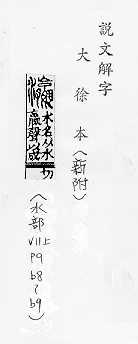 説文解字
大徐本(新附)
水名从水
嬴聲以成切
(水部
VII上
P9
b8〜
b9)